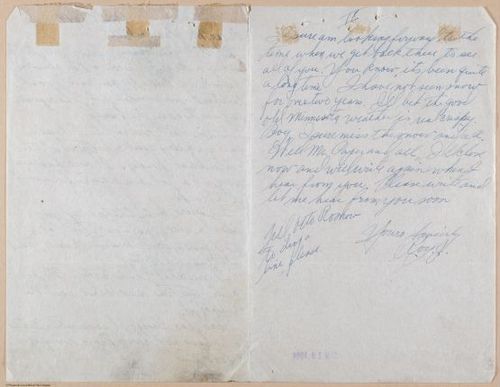 I sure am looking forward to the
time when we get back there to see
all of you. You know, it's been quite
a long time. I have not seen snow
for years. I'll bet it good
old Minnesota weather is
Boy, I sure miss the snow and all
Well Mr. and all, I'll close
now and will write again when I
hear from you. Please write and
let me hear from you soon
Yours
Tell Pete Roskow
to drop a
line, please